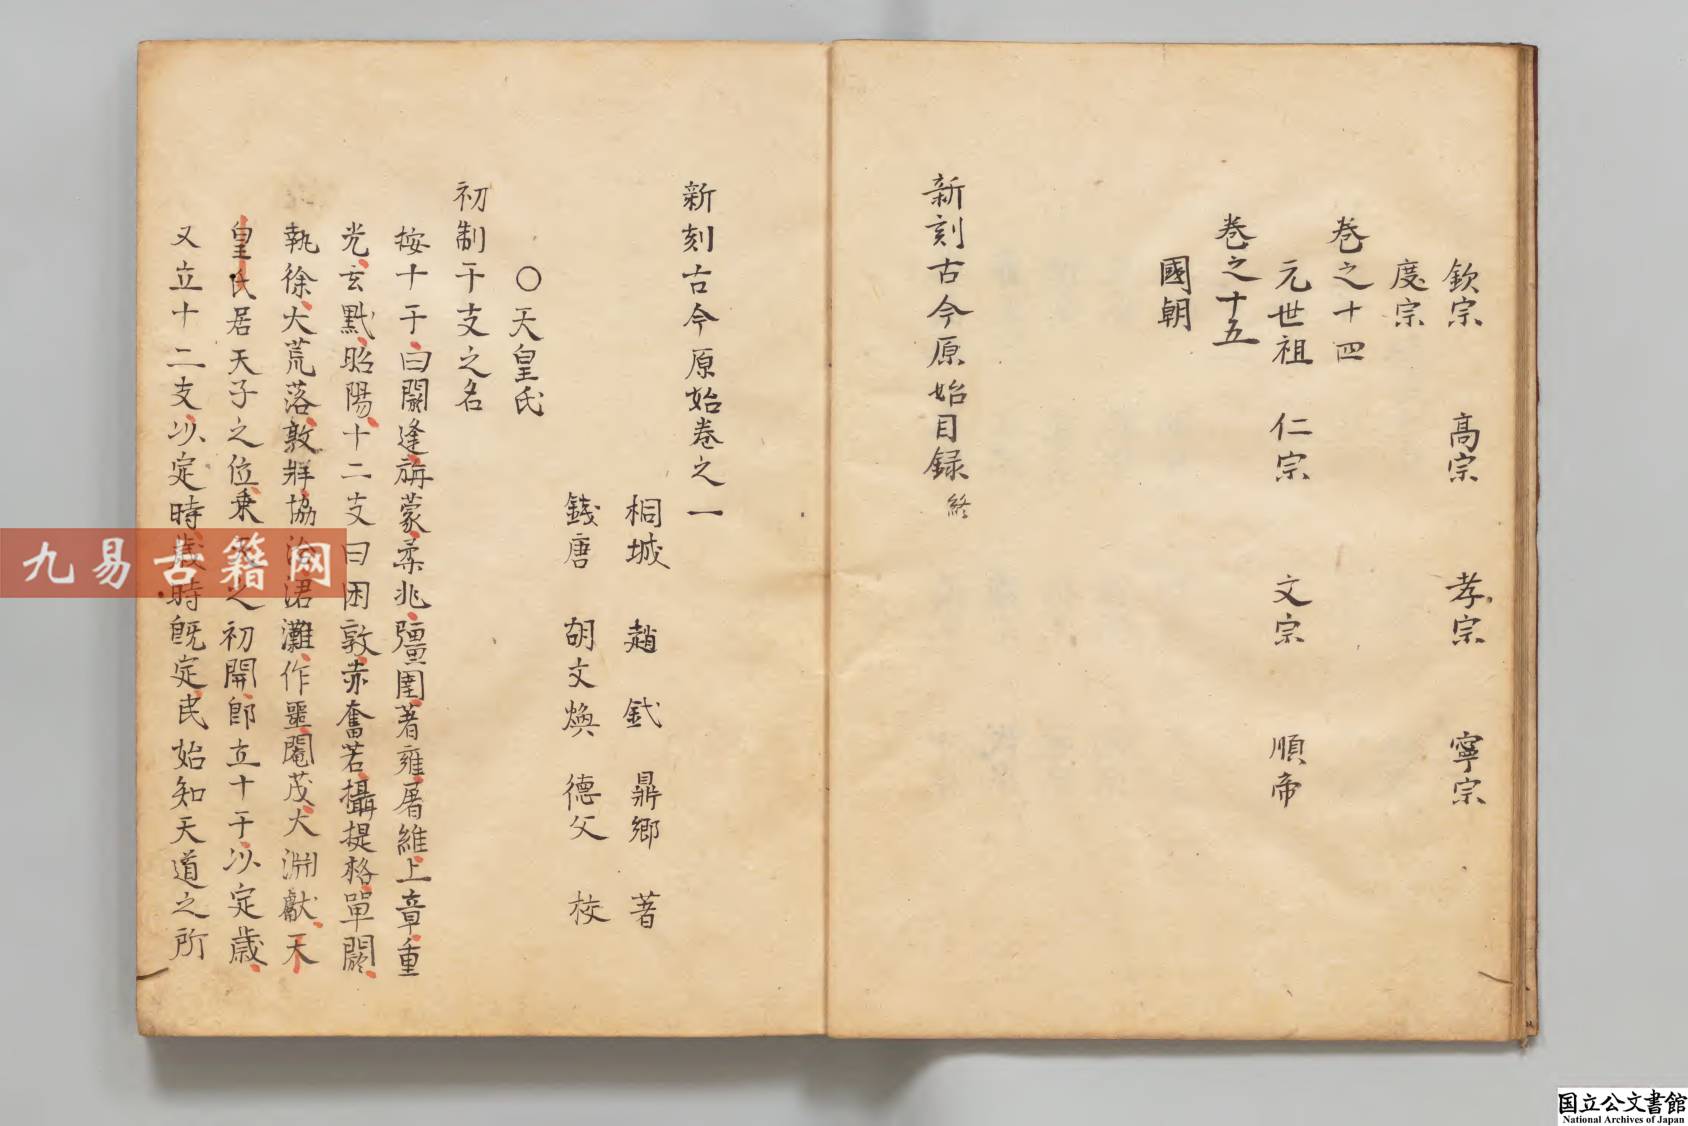 欽宗　高宗　孝宗　寧宗
度宗
卷之十四
元世祖　仁宗　文宗　順帝
卷之十五
國朝
新刻古今原始目録 終
新刻古今原始卷之一
桐城　趙釴　鼎鄉　著
錢唐　胡文煥　德父　校
〇天皇氏
初制干支之名
按十干曰閼逢旃蒙柔兆彊圉著雍屠維上章重
光玄黓昭陽十二支曰困敦赤奮若攝提格單閼
執徐大荒落敦牂協洽涒灘作噩閹茂大淵獻天
皇氏居天子之位乗 之初開即立十干以定歲
又立十二支以定時歲時既定民始知天道之所
九易古籍网
国立公文書館
National Archives of Japan